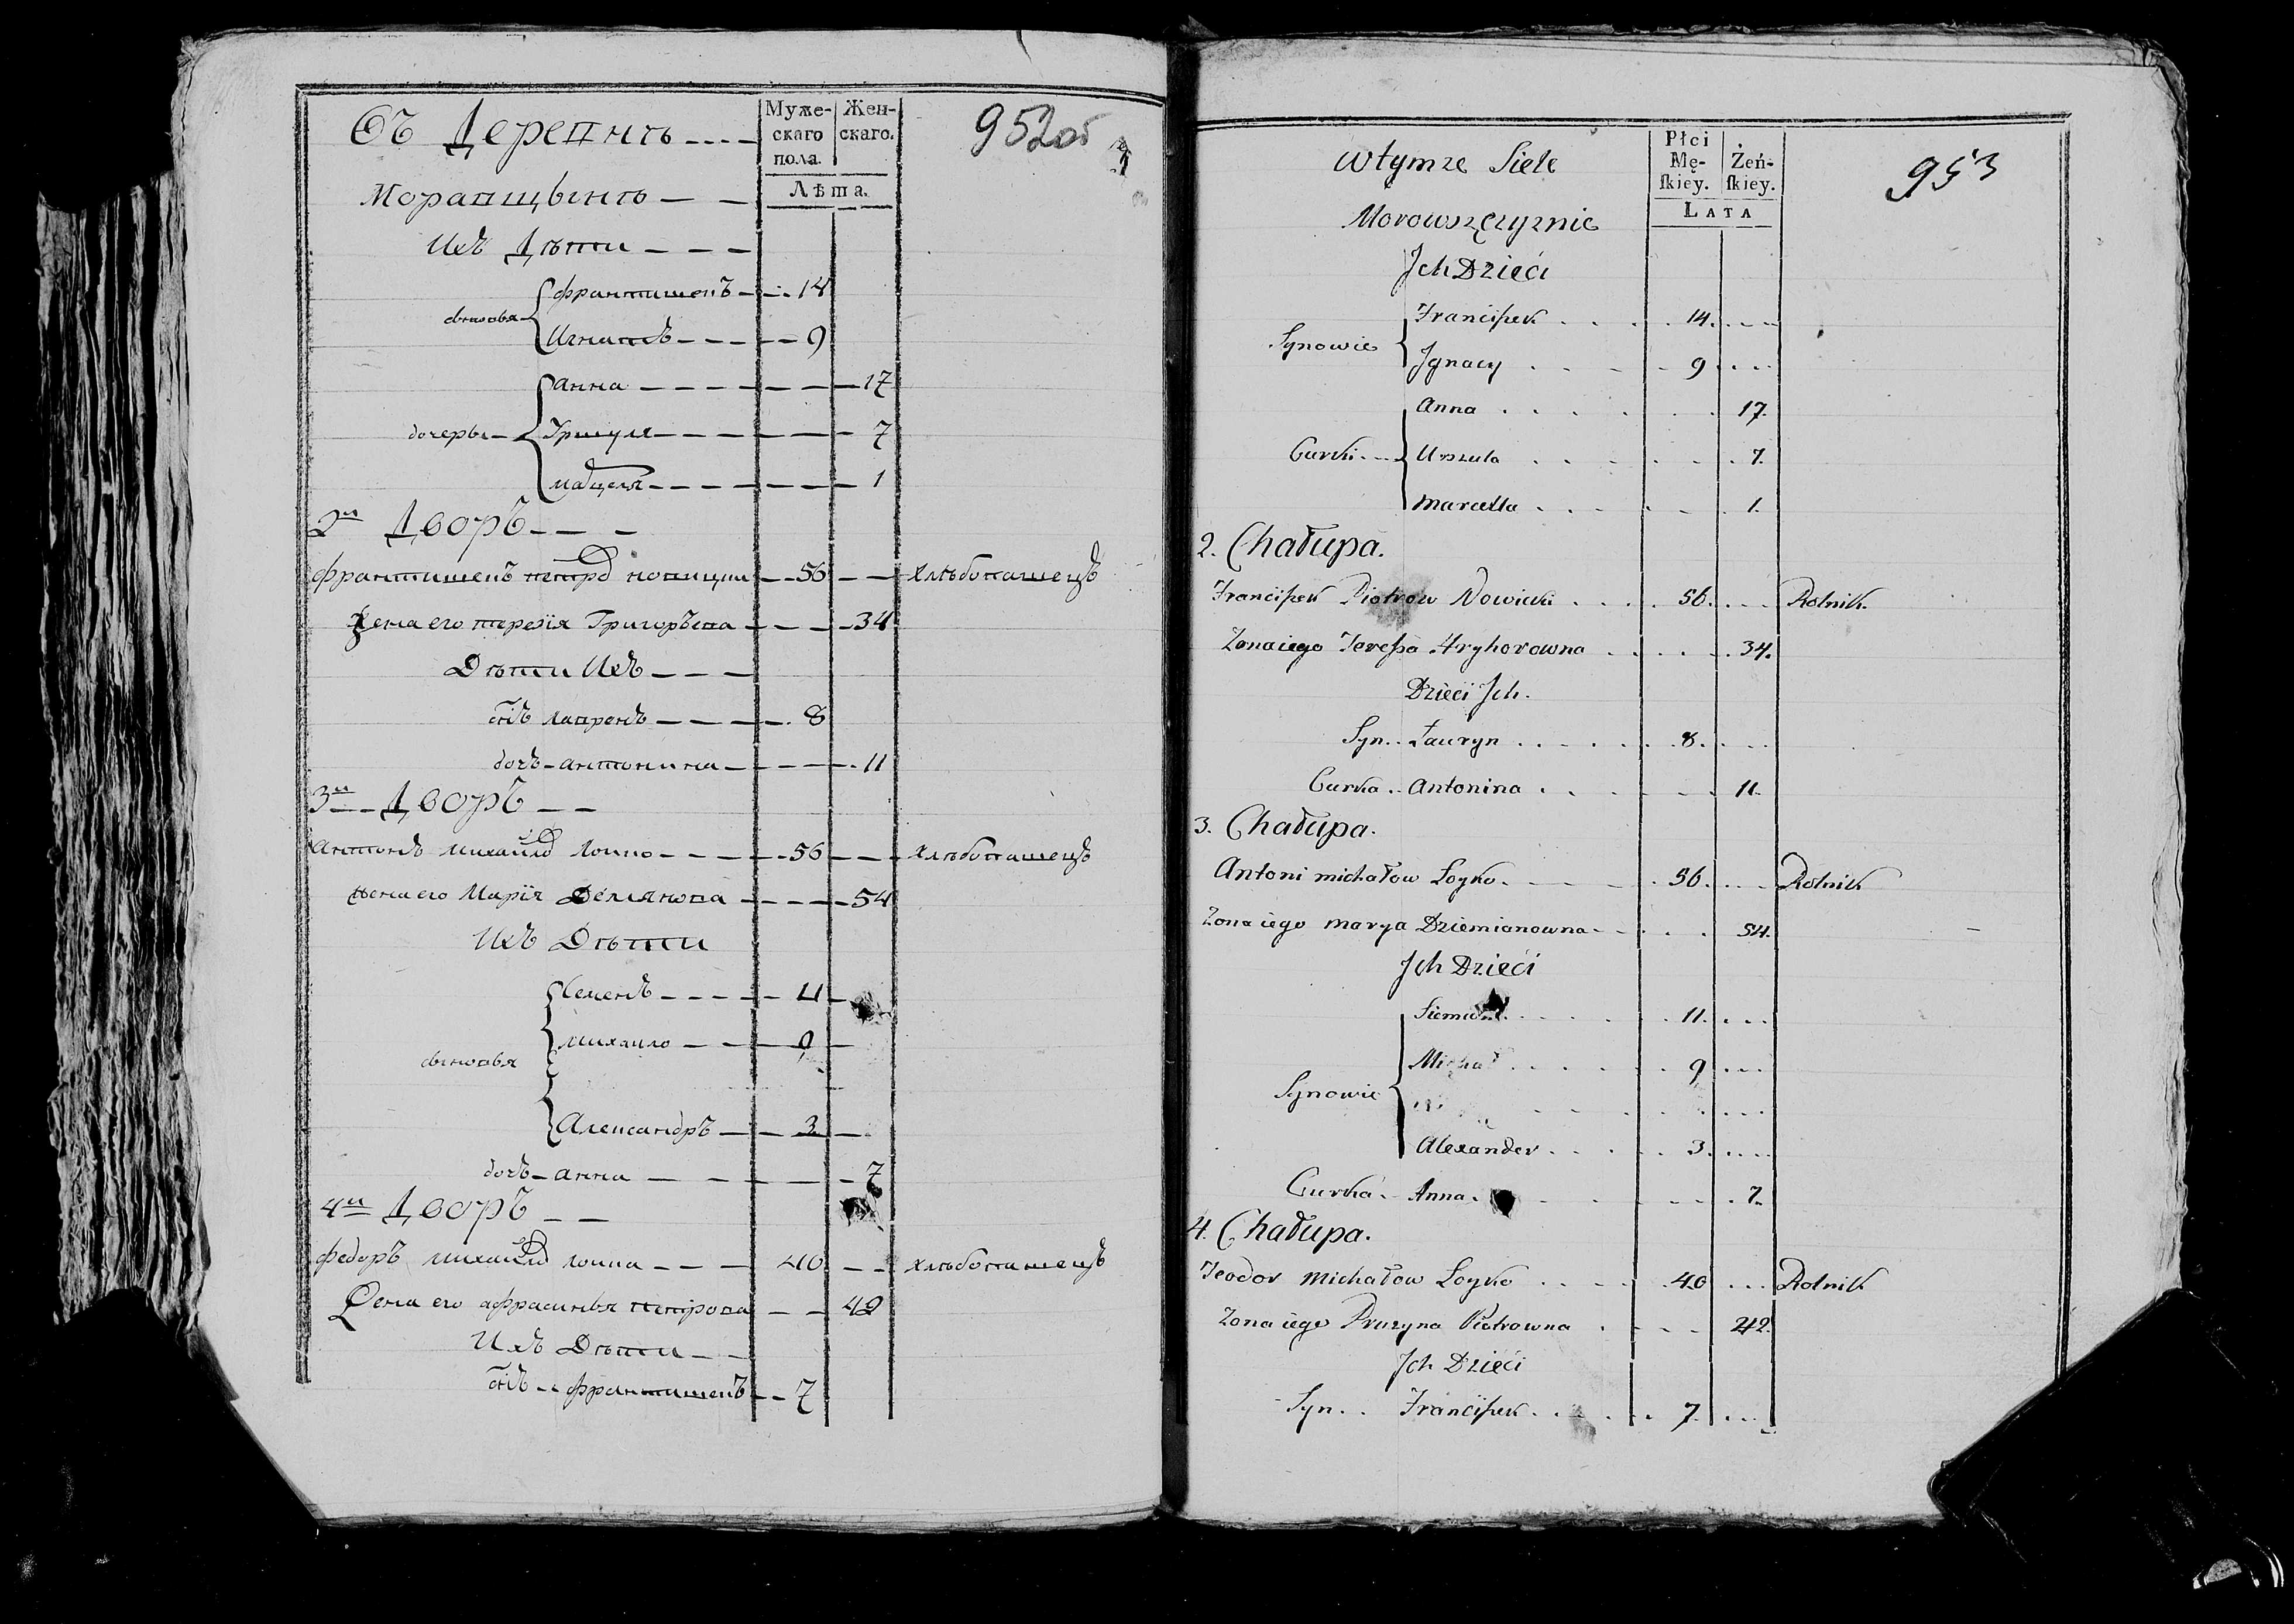 Въ Деревнѣ
Муже-
скаго
пола.
Жен-
скаго.
Лѣта.
952об
Моравщинѣ
Ихъ Дѣти
сыновья
Францишекъ 14
Игнатъ 9
дочеры
Анна 17
Уршуля 7
Марцеля 1
2й Дворъ
Францишекъ Петров Новицки 56 хлѣбопашецъ
Жена его Терезія Григорьева 34
Дѣти Ихъ
сынъ Лавренъ 8
дочь Антонина 11
3й Дворъ
Антонъ Михайлов Лойко 56 хлѣбопашецъ
Жена его Марія Демянова 54
Ихъ Дѣти
сыновья
Семенъ 11
Михайло 9
Александръ 3
дочь Анна 7
4й Дворъ
Федоръ Михайлов Лойка 40 хлѣбопашецъ
Жена его Афрасинья Петрова 42
Ихъ Дѣти
сынъ Францишекъ 7
Wtymże Siele
Płci
Mę-
ſkiey.
Żeń-
ſkiey.
LATA
953
Morowszczyznie
Jch Dzieći
Synowie
Franciſzek 14.
Jgnacy 9
Curki
Anna 17.
Urszula 7.
Marcella 1.
2. Chałupa.
Franciſzek Piotrow Nowicki 56. Rolnik.
Zona iego Tereſsa Hryhorowna 34.
Dzieći Jch.
Syn Łauryn 8.
Curka Antonina 11.
3. Chałupa.
Antoni Michałow Łoyko 56. Rolnik
Zona iego Marya Dziemianowna 54.
Jch Dzieći
Synowie
Siemion 11.
Michał 9
Alexander 3.
Curka Anna 7.
4. Chałupa.
Teodor Michałow Łoyko 40 Rolnik
Zona iego Pruzyna Piotrowna 42.
Jch Dzieći
Syn Franciſzek 7.